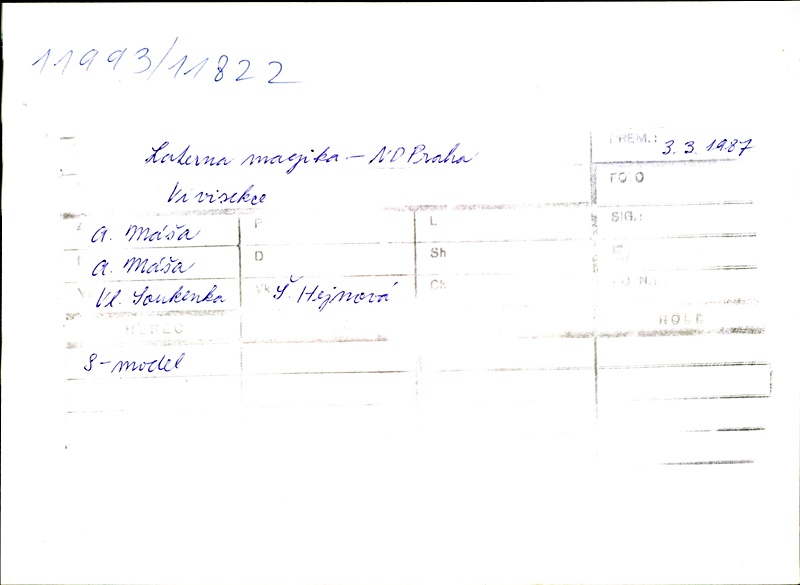 11993/11822
PREM.: 3. 3. 1987
Laterna magika – ND Praha
FOTO
Vivisekce
SIG.:
A. Máša P L
A. Máša D Sh
Vl. Soukenka Vk Š. Hejnová Ch
HEREC ROLE
S-model